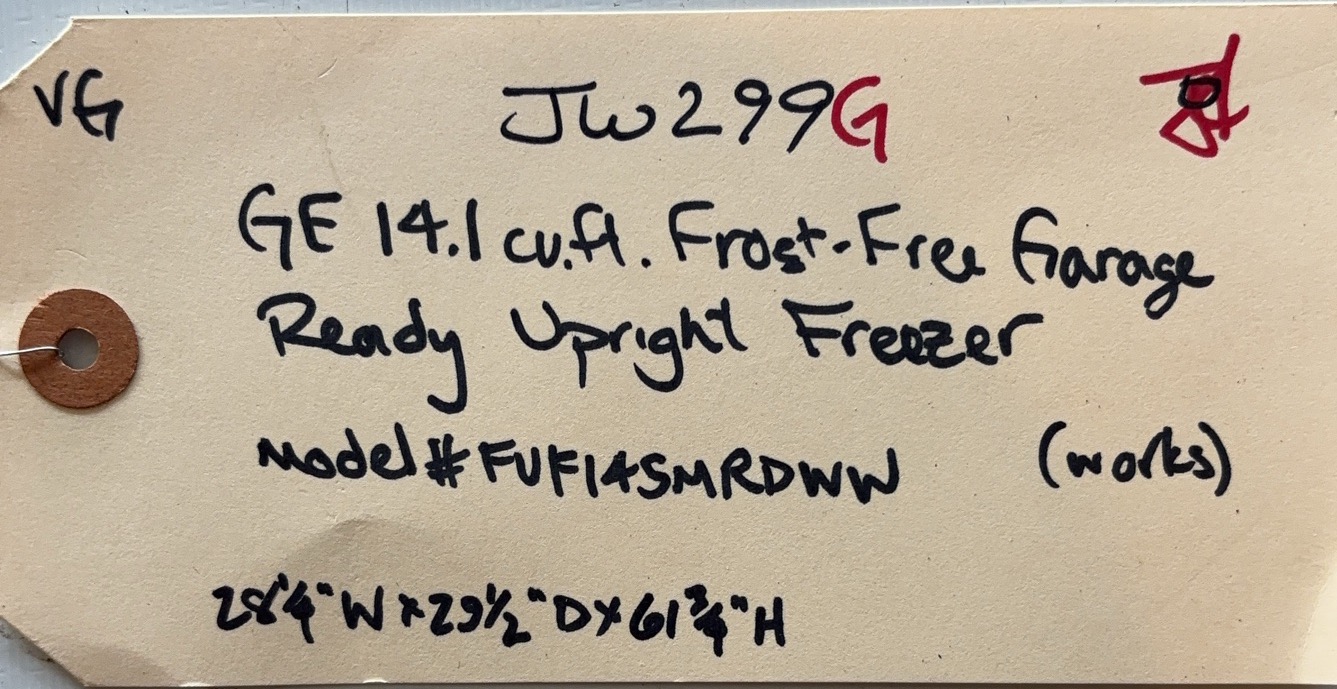 VG JW299G
GE 14.1 cu.ft. Frost-Free Garage
Ready Upright Freezer
Model# FUF14SMRDWW (works)
28 1/4" W x 29 1/2" D x 61 3/4" H